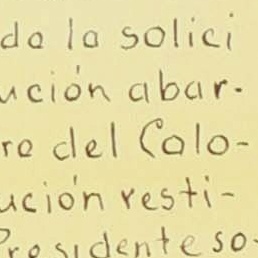 do la solici
ución abar-
ro del Colo-
ución resti-
Presidente so-